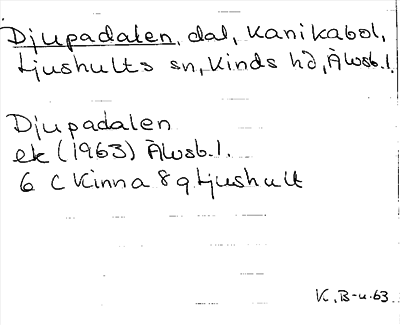 Djupadalen, dal, Kanikabol,
Ljushults sn, Kinds hd, Älvsb. l.
Djupadalen
ek (1963) Älvsb. l.
6 C Kinna 8 g Ljushult
K, B-u. 63